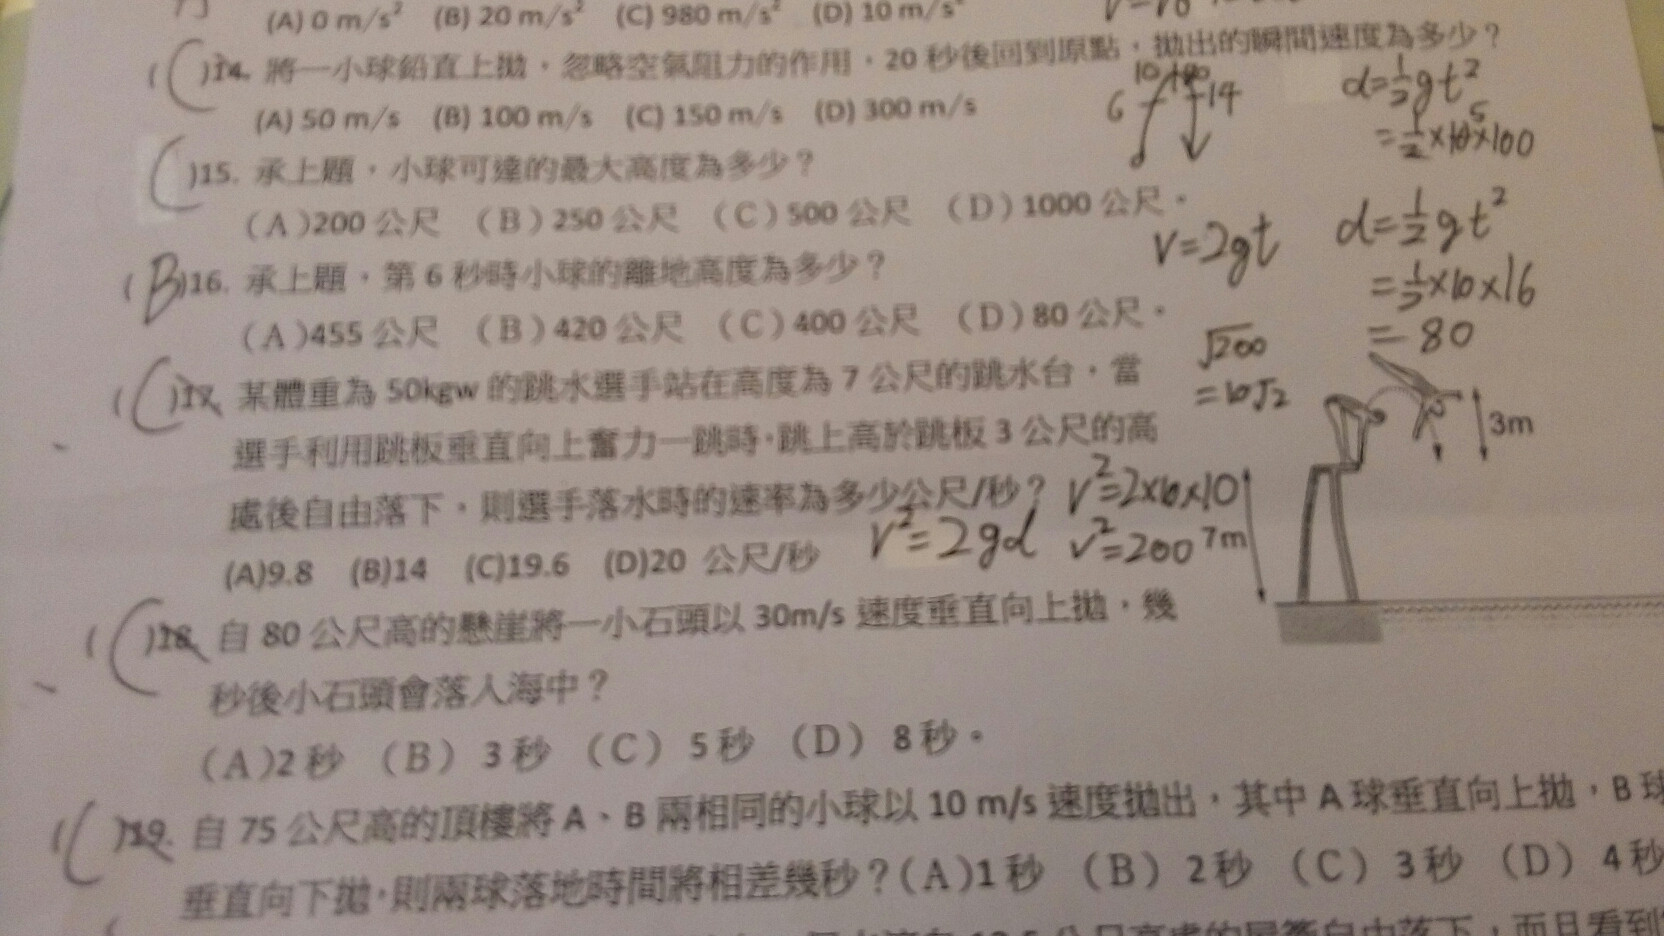 (A) 0 m/s² (B) 20 m/s² (C) 980 m/s² (D) 10 m/s²
( C )14. 將一小球鉛直上拋，忽略空氣阻力的作用，20 秒後回到原點，拋出的瞬間速度為多少？
(A) 50 m/s (B) 100 m/s (C) 150 m/s (D) 300 m/s
6 14
d=½gt²
=½×10×100
5
( C )15. 承上題，小球可達的最大高度為多少？
（A）200 公尺 （B）250 公尺 （C）500 公尺 （D）1000 公尺。
( B )16. 承上題，第 6 秒時小球的離地高度為多少？
（A）455 公尺 （B）420 公尺 （C）400 公尺 （D）80 公尺。
V=2gt
d=½gt²
=½×10×16
=80
√200
=10√2
( C )17. 某體重為 50kgw 的跳水選手站在高度為 7 公尺的跳水台，當
選手利用跳板垂直向上奮力一跳時，跳上高於跳板 3 公尺的高
處後自由落下，則選手落水時的速率為多少公尺/秒？
(A)9.8 (B)14 (C)19.6 (D)20 公尺/秒
V²=2gd
V²=2×10×10
V²=200
3m
7m
( C )18. 自 80 公尺高的懸崖將一小石頭以 30m/s 速度垂直向上拋，幾
秒後小石頭會落入海中？
（A）2 秒 （B） 3 秒 （C） 5 秒 （D） 8 秒。
( C )19. 自 75 公尺高的頂樓將 A、B 兩相同的小球以 10 m/s 速度拋出，其中 A 球垂直向上拋，B 球
垂直向下拋，則兩球落地時間將相差幾秒？（A）1 秒 （B） 2 秒 （C） 3 秒 （D） 4 秒